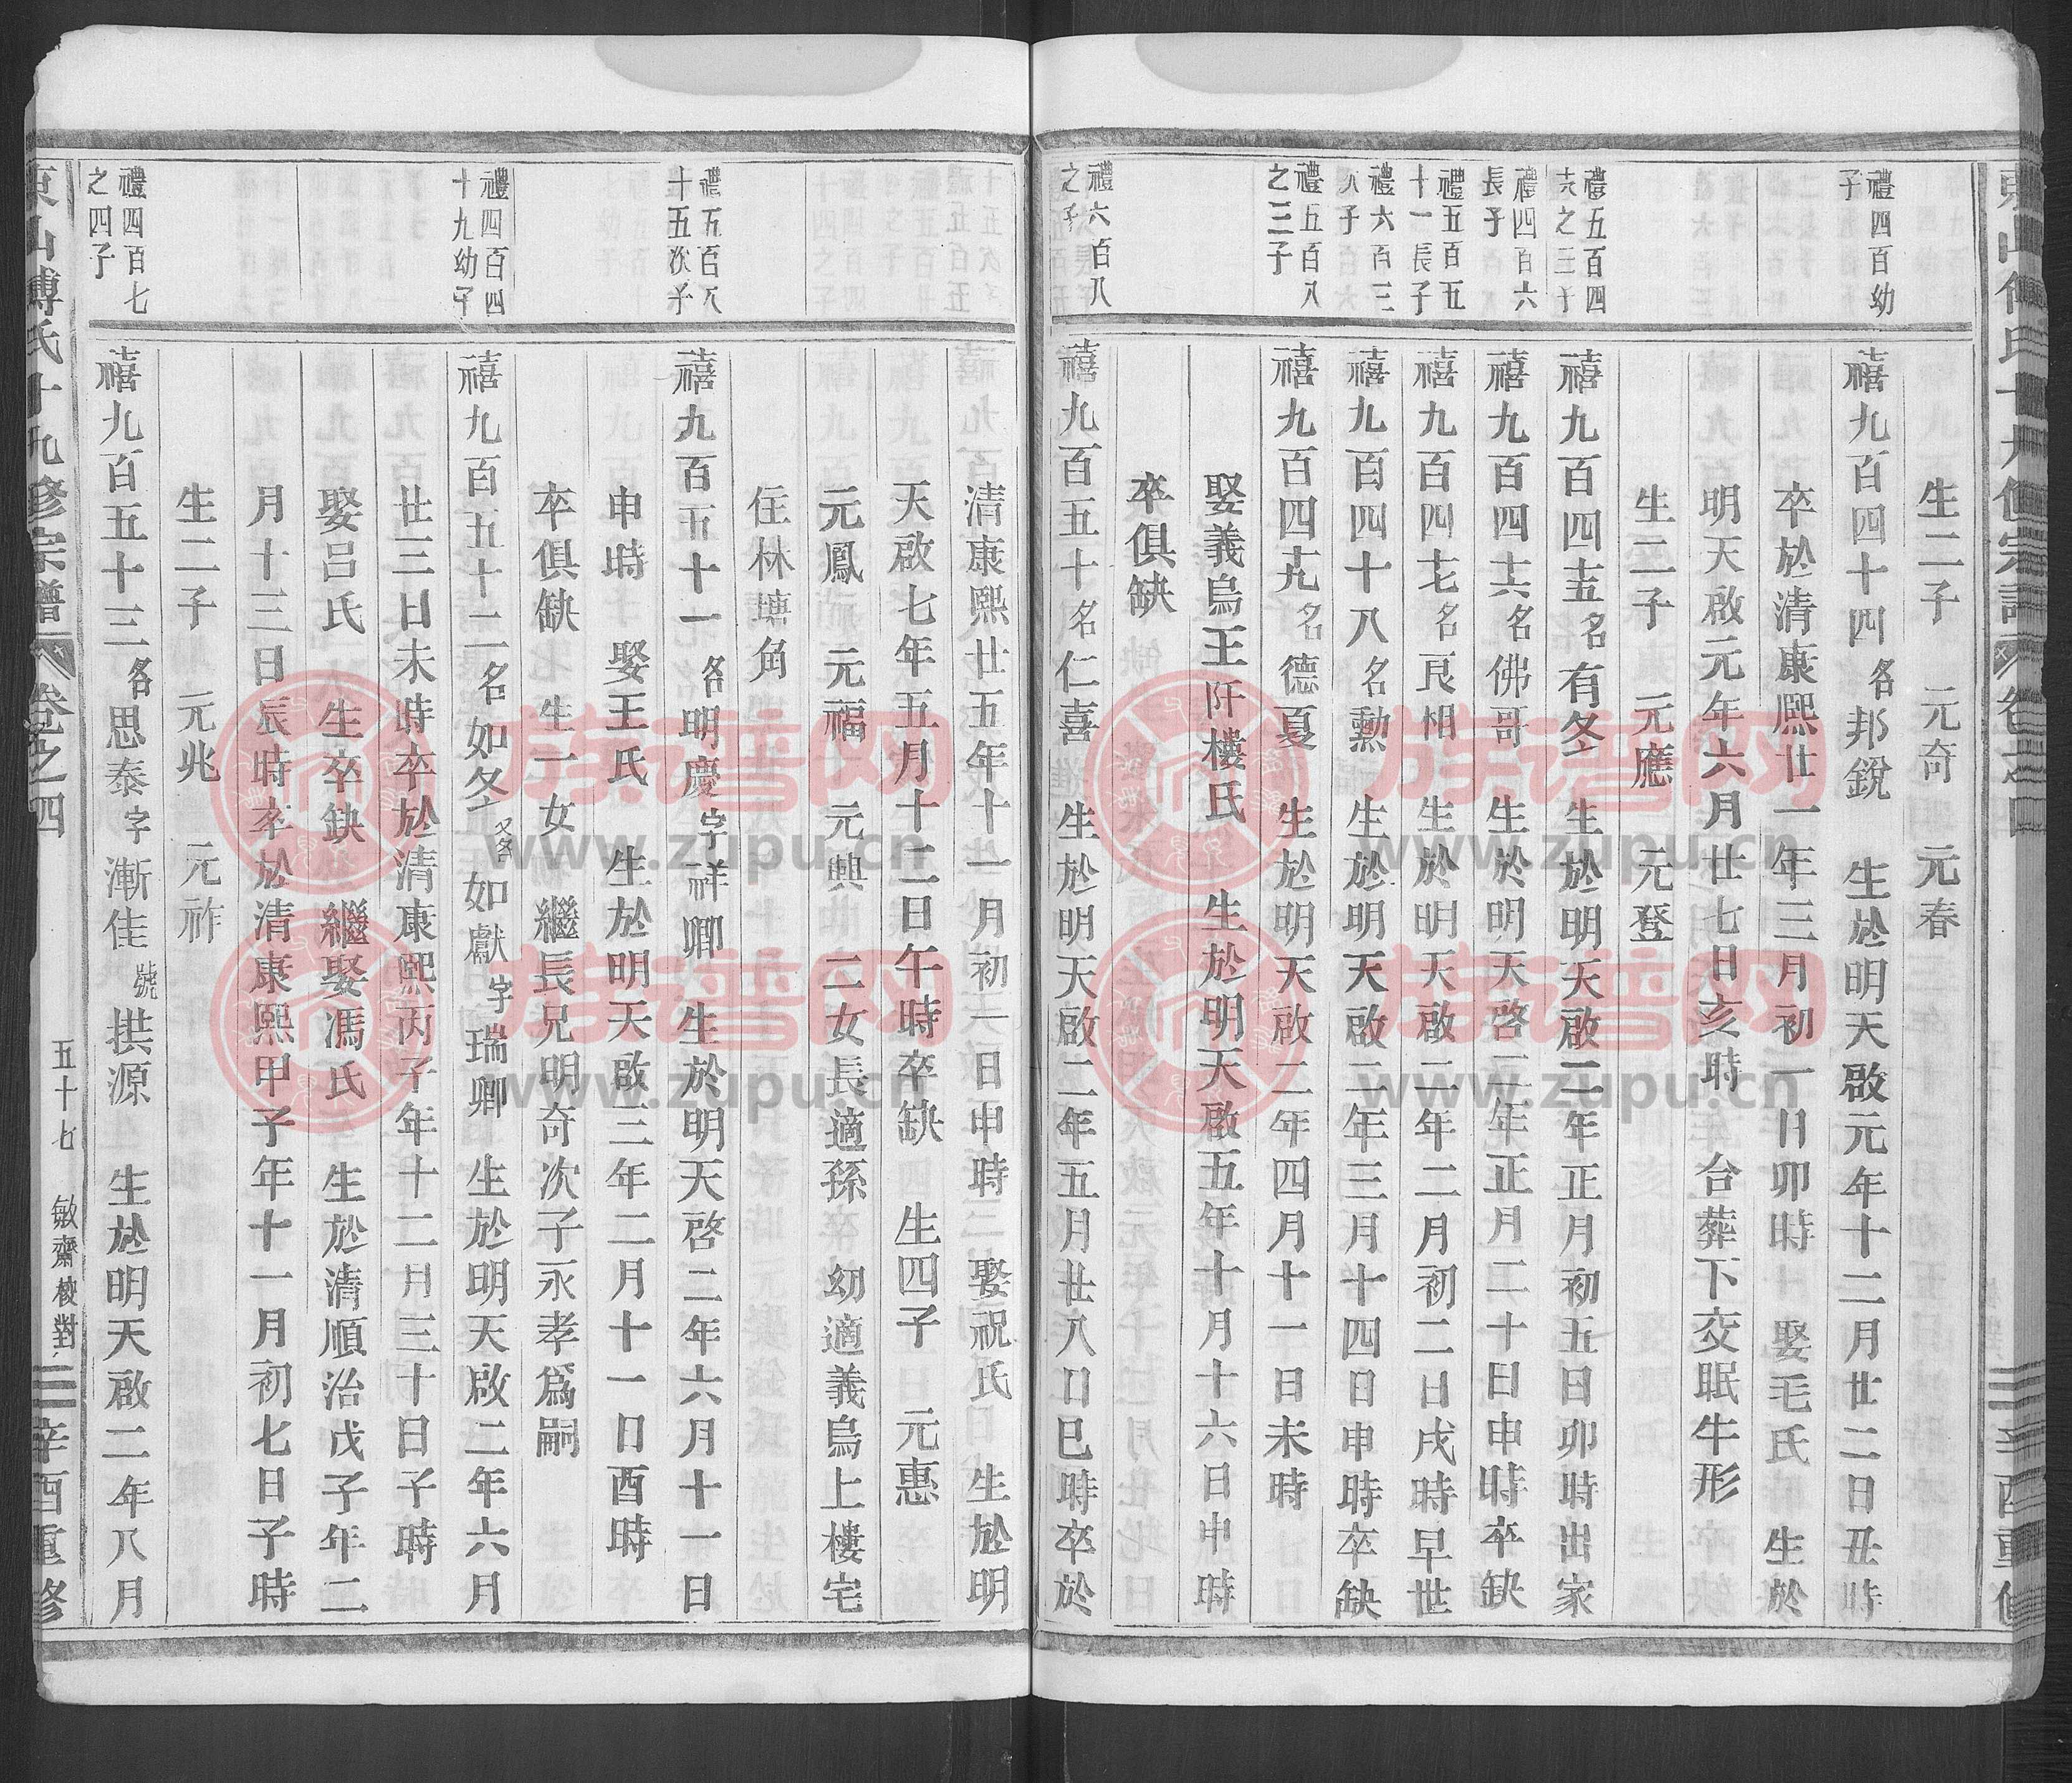 生二子　元奇　元春
禮四百幼子
禧九百四十四名邦銳　生於明天啟元年十二月廿二日丑時
卒於清康熙廿一年三月初一日卯時　娶毛氏　生於
明天啟元年六月廿七日亥時　合葬下交眠牛形
生二子　元應　元登
禮五百四十六之三子
禧九百四十五名有冬　生於明天啟二年正月初五日卯時出家
禮四百六長子
禧九百四十六名佛哥　生於明天啓二年正月二十日申時卒缺
禮五百五十一長子
禧九百四十七名良相　生於明天啟二年二月初二日戌時早世
禮六百三八子
禧九百四十八名勲　生於明天啟二年三月十四日申時卒缺
禮五百八之三子
禧九百四十九名德夏　生於明天啟二年四月十一日未時
娶義烏王阡樓氏　生於明天啟五年十月十六日申時
卒俱缺
禮六百八之子
禧九百五十名仁喜　生於明天啟二年五月廿八日巳時卒於
清康熙廿五年十一月初一日申時　娶祝氏　生於明
天啟七年五月十二日午時卒缺　生四子　元惠
元鳳　元福　元興　二女長適孫　幼適義烏上樓宅
住林塘角
禮五百八十五次子
禧九百五十一名明慶字祥卿　生於明天啓二年六月十一日
申時　娶王氏　生於明天啟三年二月十一日酉時
卒俱缺　生一女　繼長兄明奇次子永孝爲嗣
禮四百四十九幼子
禧九百五十二名如冬又名如獻字瑞卿　生於明天啟二年六月
廿三日未時卒於清康熙丙子年十二月三十日子時
娶呂氏　生卒缺　繼娶馮氏　生於清順治戊子年二
月十三日辰時卒於清康熙甲子年十一月初七日子時
生二子　元兆　元祚
禮四百七之四子
禧九百五十三名思泰字漸佳號拱源　生於明天啟二年八月
東山傅氏十九修宗譜　卷之四　五十七　敏齋校對　辛酉重修